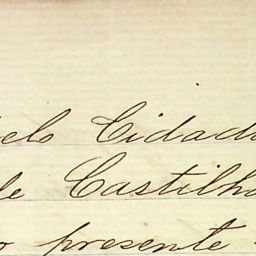 pelo Cidadã
de Castilho
o presente